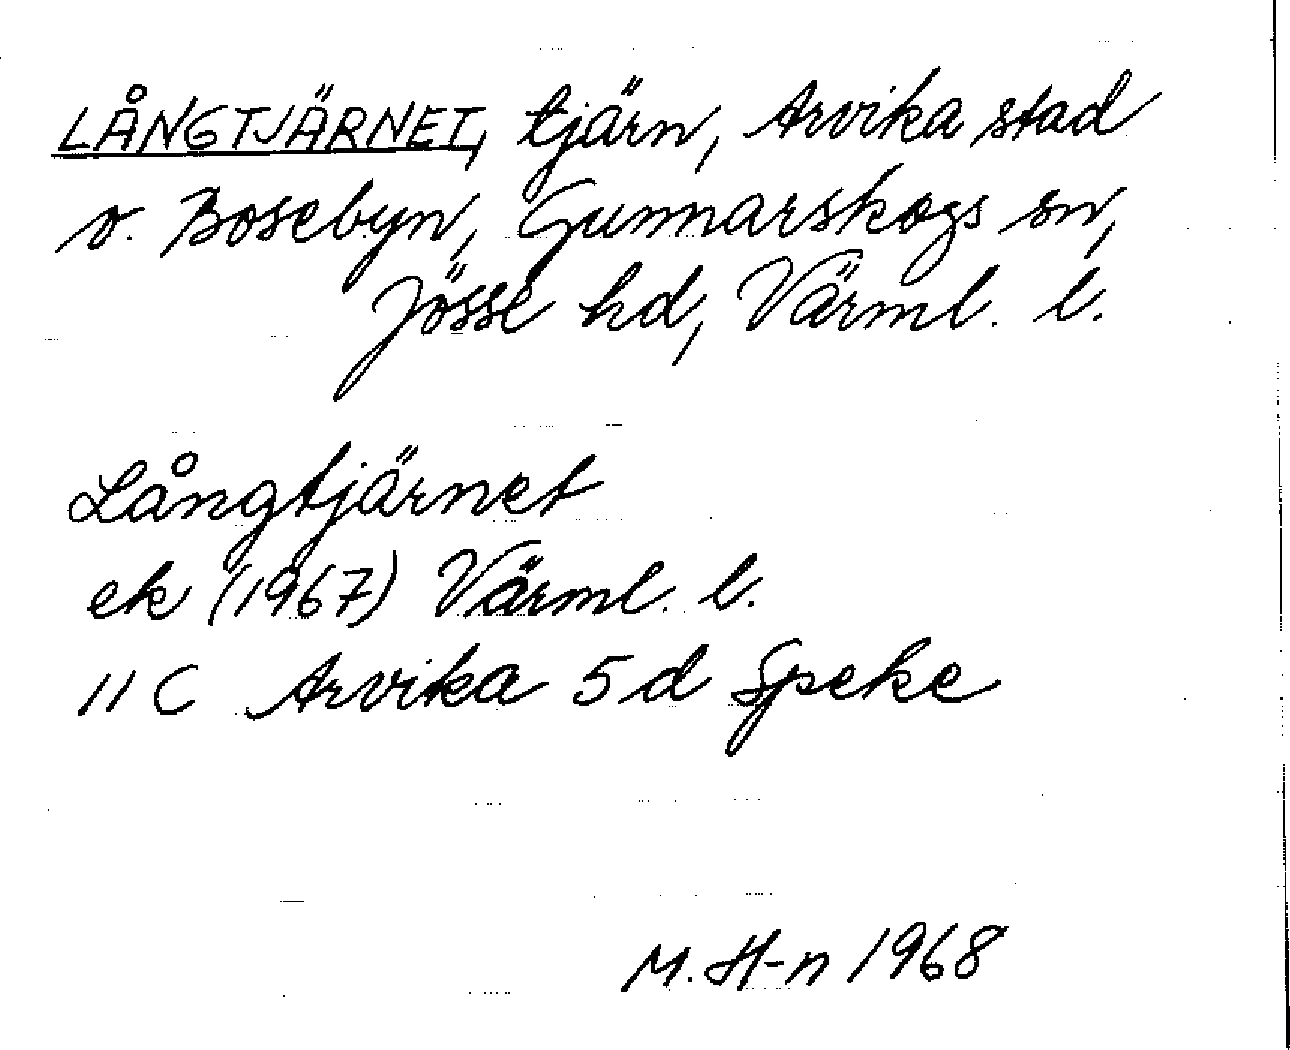 LÅNGTJÄRNET, tjärn, Arvika stad
o. Bosebyn, Gunnarskogs sn,
Jösse hd, Värml. l.
Långtjärnet
ek (1967) Värml. l.
11 C Arvika 5 d Speke
M. H-n 1968